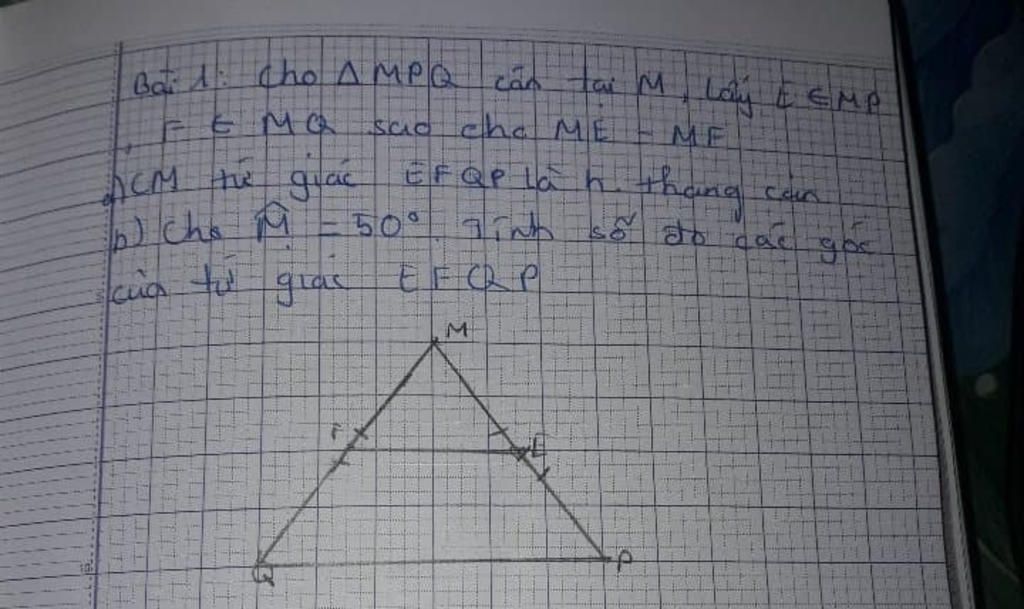 Bài 1: Cho Δ MPQ cân tại M, Lấy E ∈ MP
, F ∈ MQ sao cho ME = MF
a) CM tứ giác EFQP là h. thang cân
b) Cho M̂ = 50°. Tính số đo các góc
của tứ giác EFQP
M
F E
Q P